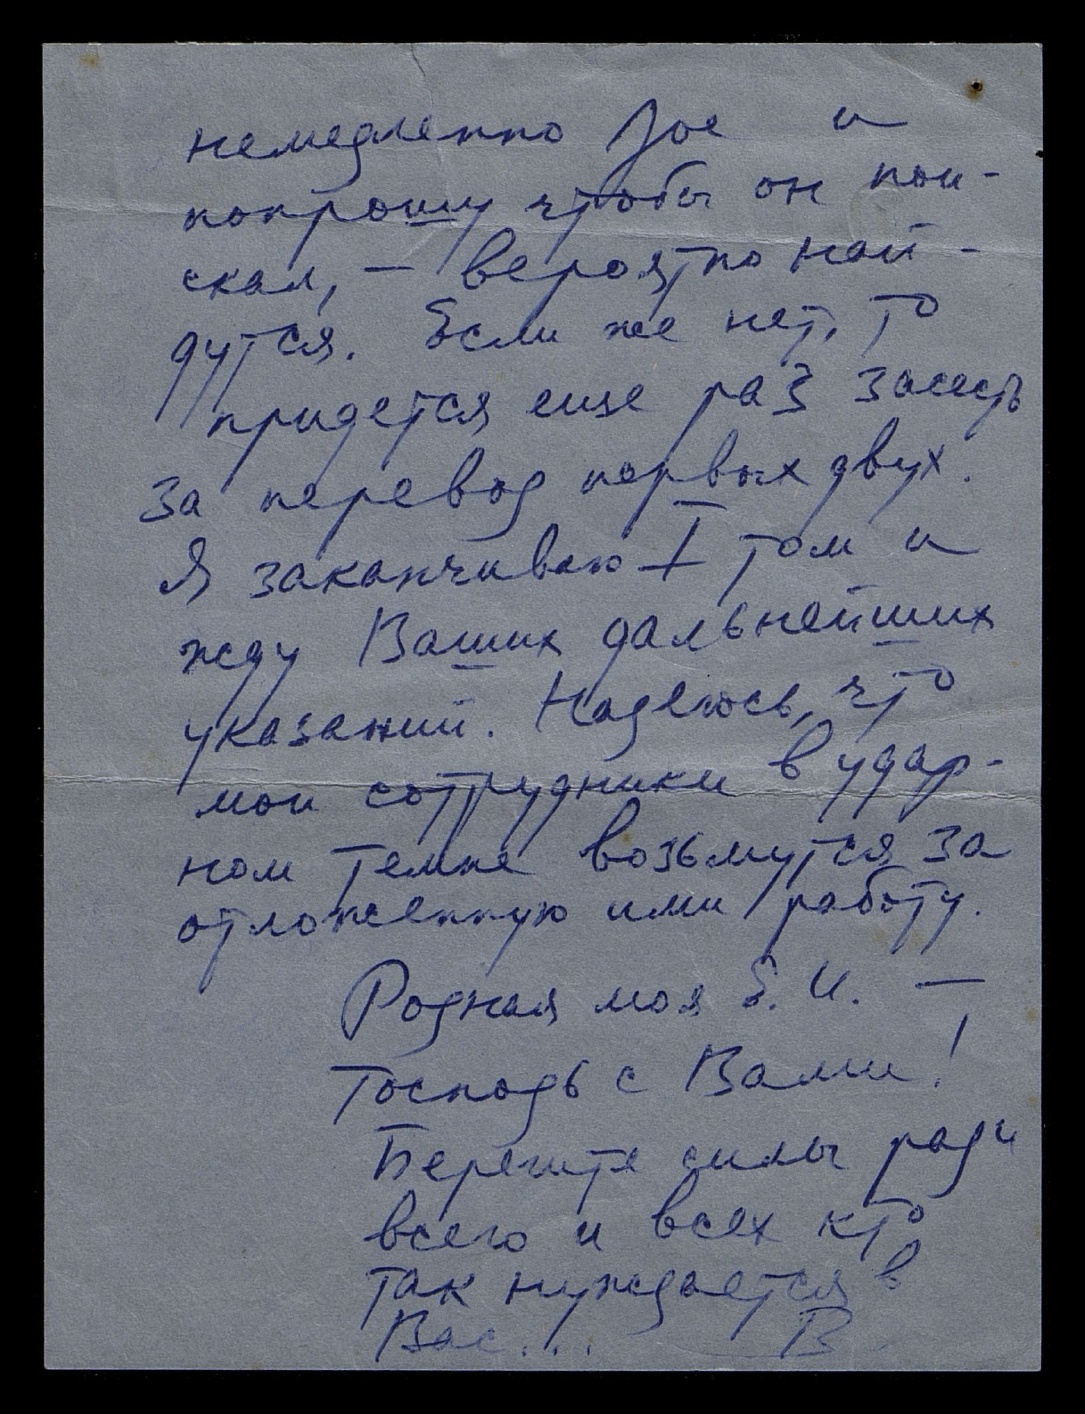 немедленно Зое и
попрошу чтобы он пои-
скал, — вероятно най-
дутся. Если же нет, то
придется еще раз засесть
за перевод первых двух.
Я заканчиваю I том и
жду Ваших дальнейших
указаний. Надеюсь, что
мои сотрудники в удар-
ном темпе возьмутся за
отложенную ими работу.
Родная моя Е. И. —
Господь с Вами!
Берегите силы ради
всего и всех кто
так нуждается в
Вас... В